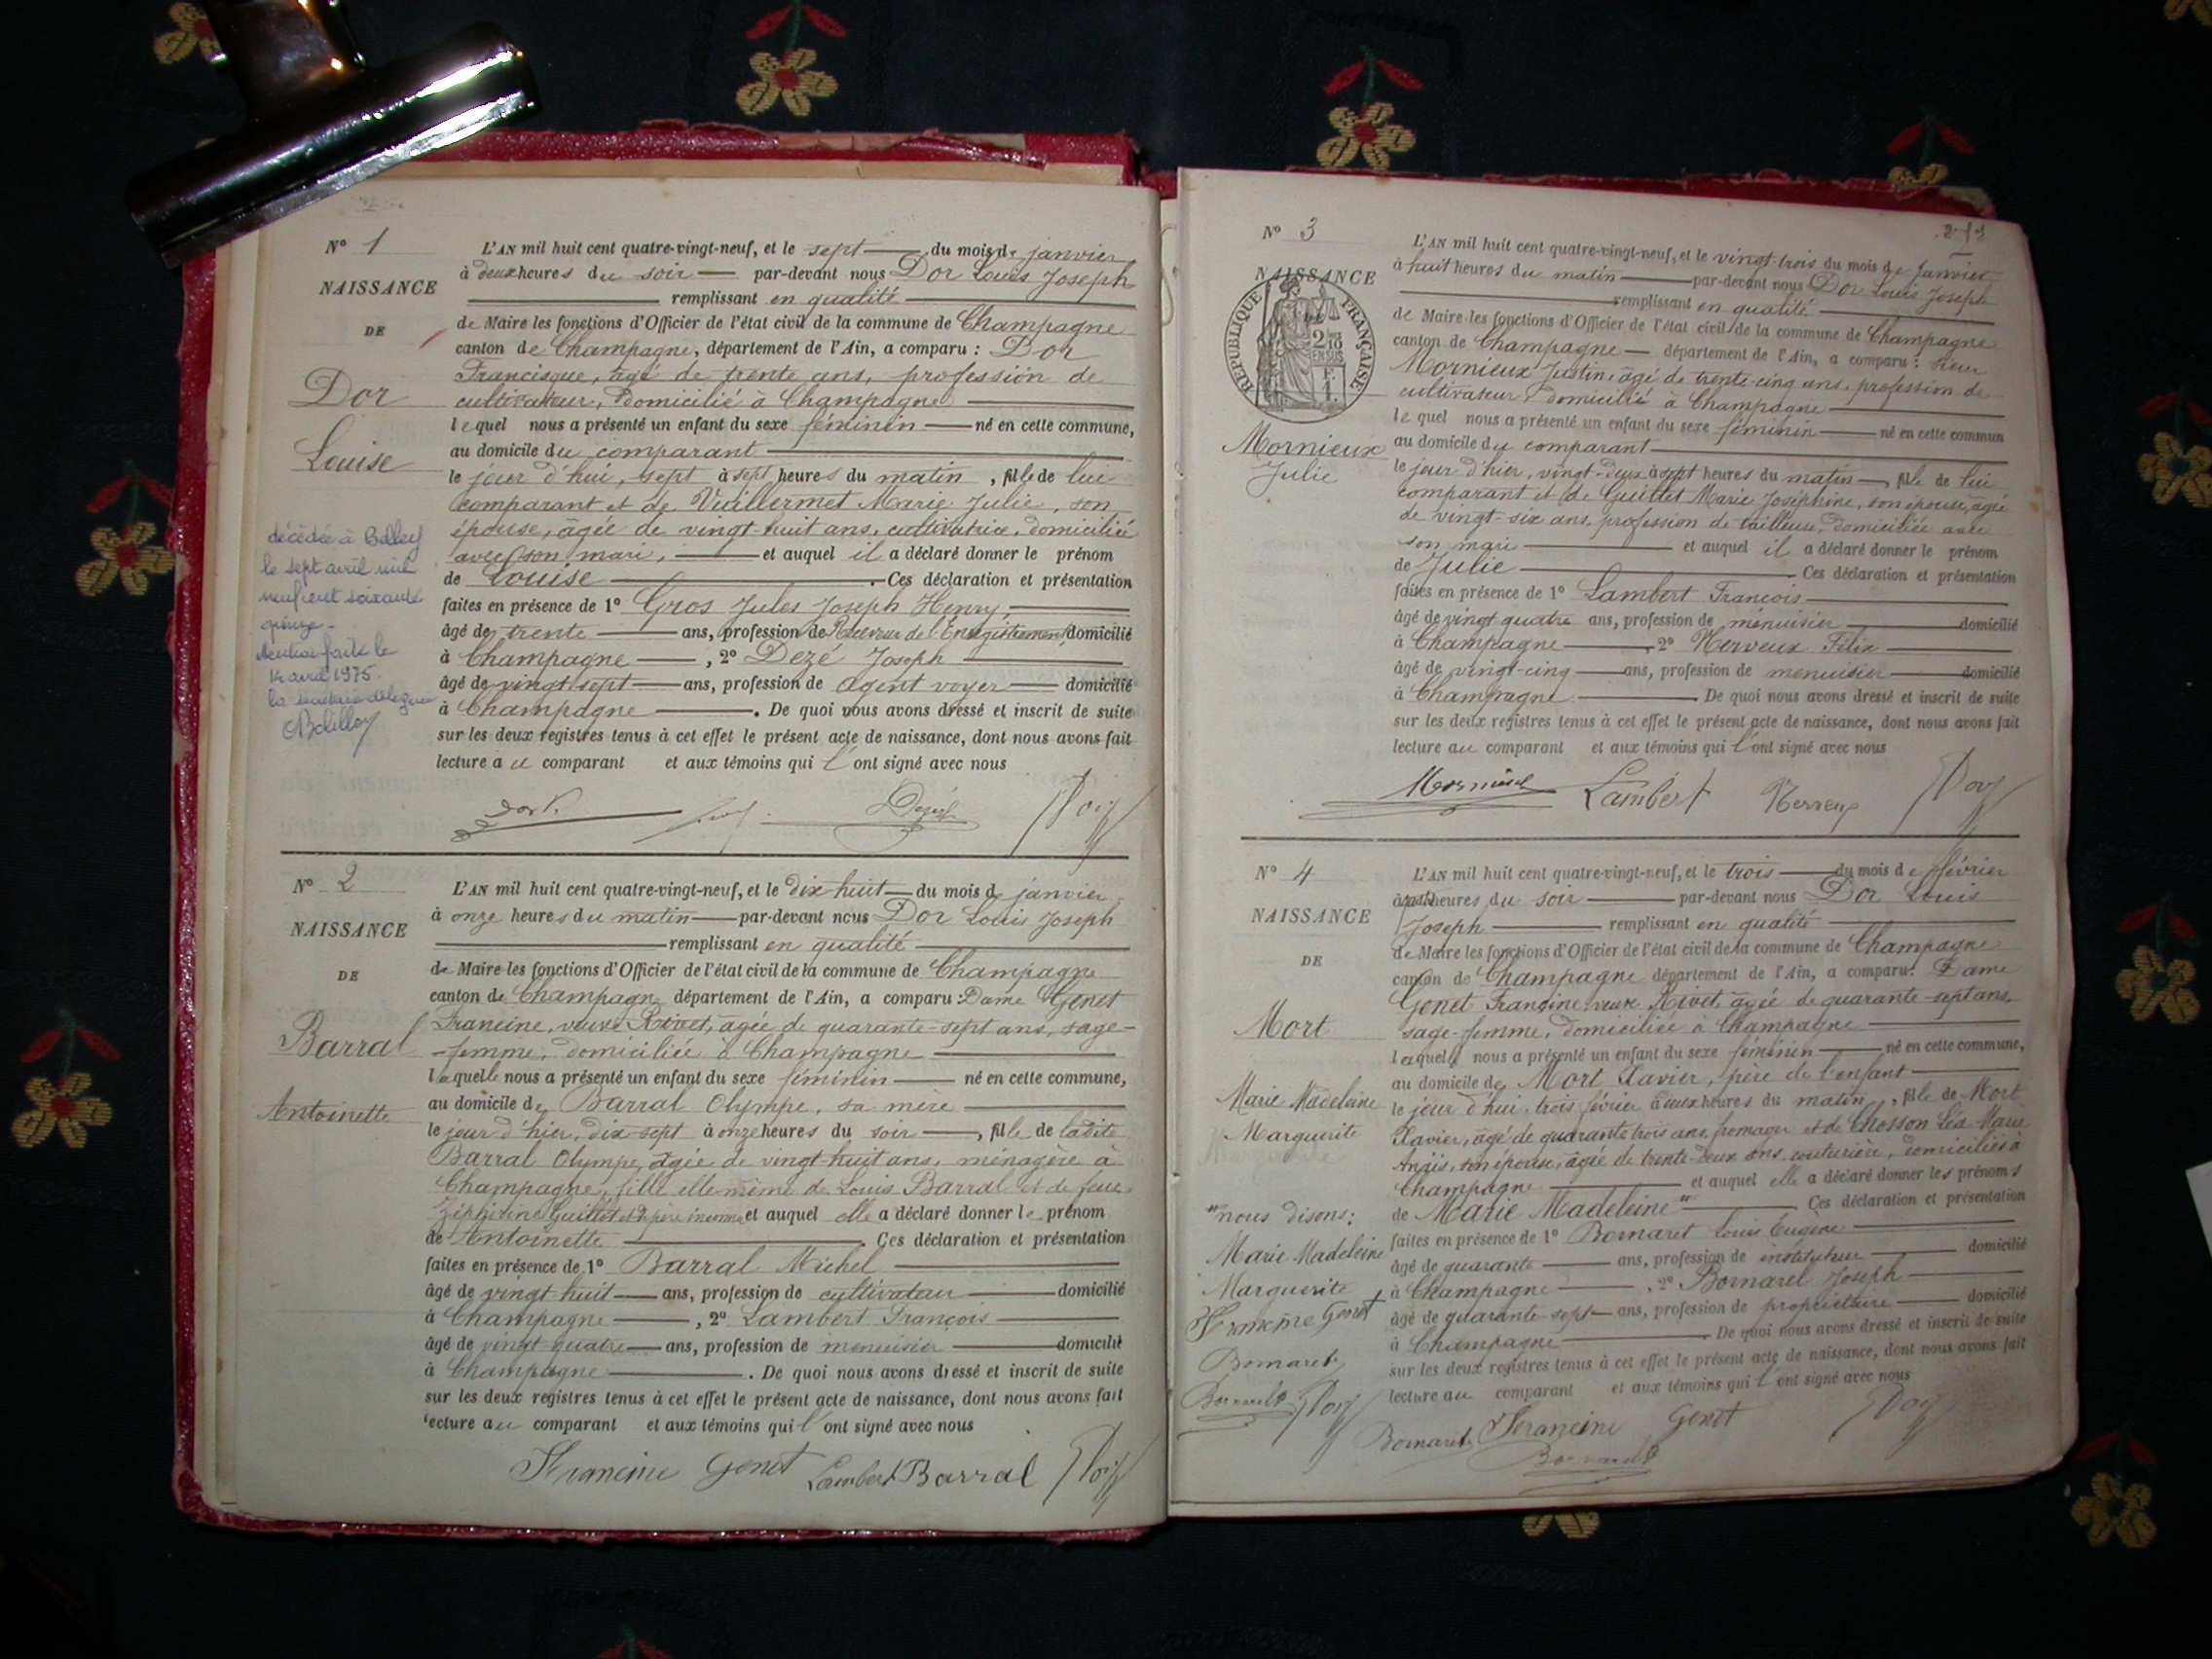 N° 1
NAISSANCE
DE
Dor
Louise
décédée à Belley
le sept avril mil
neuf cent soixante
quinze.
faite le
14 avril 1975.
L'AN mil huit cent quatre-vingt-neuf, et le sept du mois de janvier
à deux heures du soir par-devant nous Dor Louis Joseph
remplissant en qualité
de Maire les fonctions d'Officier de l'état civil de la commune de Champagne
canton de Champagne, département de l'Ain, a comparu : Dor
Francisque, âgé de trente ans, profession de
cultivateur, domicilié à Champagne
lequel nous a présenté un enfant du sexe féminin né en cette commune,
au domicile du comparant
le jour d'hui, sept à sept heures du matin, fille de lui
comparant et de Vuillermet Marie Julie, son
épouse, âgée de vingt-huit ans, cultivatrice, domiciliée
avec son mari, et auquel il a déclaré donner le prénom
de Louise. Ces déclaration et présentation
faites en présence de 1° Gros Jules Joseph Henry,
âgé de trente ans, profession de Receveur de l'Enregistrement, domicilié
à Champagne, 2° Dezé Joseph
âgé de vingt-sept ans, profession de agent voyer domicilié
à Champagne. De quoi nous avons dressé et inscrit de suite
sur les deux registres tenus à cet effet le présent acte de naissance, dont nous avons fait
lecture au comparant et aux témoins qui l'ont signé avec nous
N° 2
NAISSANCE
DE
Barral
Antoinette
L'AN mil huit cent quatre-vingt-neuf, et le dix-huit du mois de janvier
à onze heures du matin par-devant nous Dor Louis Joseph
remplissant en qualité
de Maire les fonctions d'Officier de l'état civil de la commune de Champagne
canton de Champagne département de l'Ain, a comparu : Dame Genet
Francine, veuve Rivet, âgée de quarante-sept ans, sage-
-femme, domiciliée à Champagne
laquelle nous a présenté un enfant du sexe féminin né en cette commune,
au domicile de Barral Olympe, sa mère
le jour d'hier, dix-sept à onze heures du soir, fille de ladite
Barral Olympe, âgée de vingt-huit ans, ménagère à
Champagne, fille elle même de Louis Barral et de feue
Zéphirine Guillot et de père inconnu et auquel elle a déclaré donner le prénom
de Antoinette. Ces déclaration et présentation
faites en présence de 1° Barral Michel
âgé de vingt-huit ans, profession de cultivateur domicilié
à Champagne, 2° Lambert François
âgé de vingt-quatre ans, profession de menuisier domicilié
à Champagne. De quoi nous avons dressé et inscrit de suite
sur les deux registres tenus à cet effet le présent acte de naissance, dont nous avons fait
lecture au comparant et aux témoins qui l'ont signé avec nous
Francine Genet Lambert Barral
N° 3
NAISSANCE
RÉPUBLIQUE FRANÇAISE
Mornieux
Julie
L'AN mil huit cent quatre-vingt-neuf, et le vingt-trois du mois de janvier
à huit heures du matin par-devant nous Dor Louis Joseph
remplissant en qualité
de Maire les fonctions d'Officier de l'état civil de la commune de Champagne
canton de Champagne département de l'Ain, a comparu : sieur
Mornieux Justin, âgé de trente-cinq ans, profession de
cultivateur domicilié à Champagne
lequel nous a présenté un enfant du sexe féminin né en cette commun
au domicile du comparant
le jour d'hier, vingt-deux à sept heures du matin, fille de lui
comparant et de Guillet Marie Joséphine, son épouse, âgée
de vingt-six ans, profession de tailleuse, domiciliée avec
son mari et auquel il a déclaré donner le prénom
de Julie. Ces déclaration et présentation
faites en présence de 1° Lambert François
âgé de vingt quatre ans, profession de menuisier domicilié
à Champagne 2° Nerveux Félix
âgé de vingt-cinq ans, profession de menuisier domicilié
à Champagne. De quoi nous avons dressé et inscrit de suite
sur les deux registres tenus à cet effet le présent acte de naissance, dont nous avons fait
lecture au comparant et aux témoins qui l'ont signé avec nous
Lambert
N° 4
NAISSANCE
DE
Mort
Marie Madeleine
Marguerite
nous disons:
Marie Madeleine
Marguerite
Francine Genet
L'AN mil huit cent quatre-vingt-neuf, et le trois du mois de février
à heures du soir par-devant nous Dor Louis
Joseph remplissant en qualité
de Maire les fonctions d'Officier de l'état civil de la commune de Champagne
canton de Champagne département de l'Ain, a comparu : Dame
Genet Francine veuve Rivet, âgée de quarante-sept ans,
sage-femme, domiciliée à Champagne
laquelle nous a présenté un enfant du sexe féminin né en cette commune,
au domicile de Mort Xavier, père de l'enfant
le jour d'hui, trois février à heures du matin, fille de Mort
Xavier, âgé de quarante trois ans, fromager et de Chosson Léa Marie
Anaïs, son épouse, âgée de trente-deux ans, couturière, domiciliés à
Champagne et auquel elle a déclaré donner les prénoms
de Marie Madeleine. Ces déclaration et présentation
faites en présence de 1° Bornaret Louis Eugène
âgé de quarante ans, profession de instituteur domicilié
à Champagne, 2° Bornarel Joseph
âgé de quarante-sept ans, profession de propriétaire domicilié
à Champagne. De quoi nous avons dressé et inscrit de suite
sur les deux registres tenus à cet effet le présent acte de naissance, dont nous avons fait
lecture au comparant et aux témoins qui l'ont signé avec nous
Francine Genet